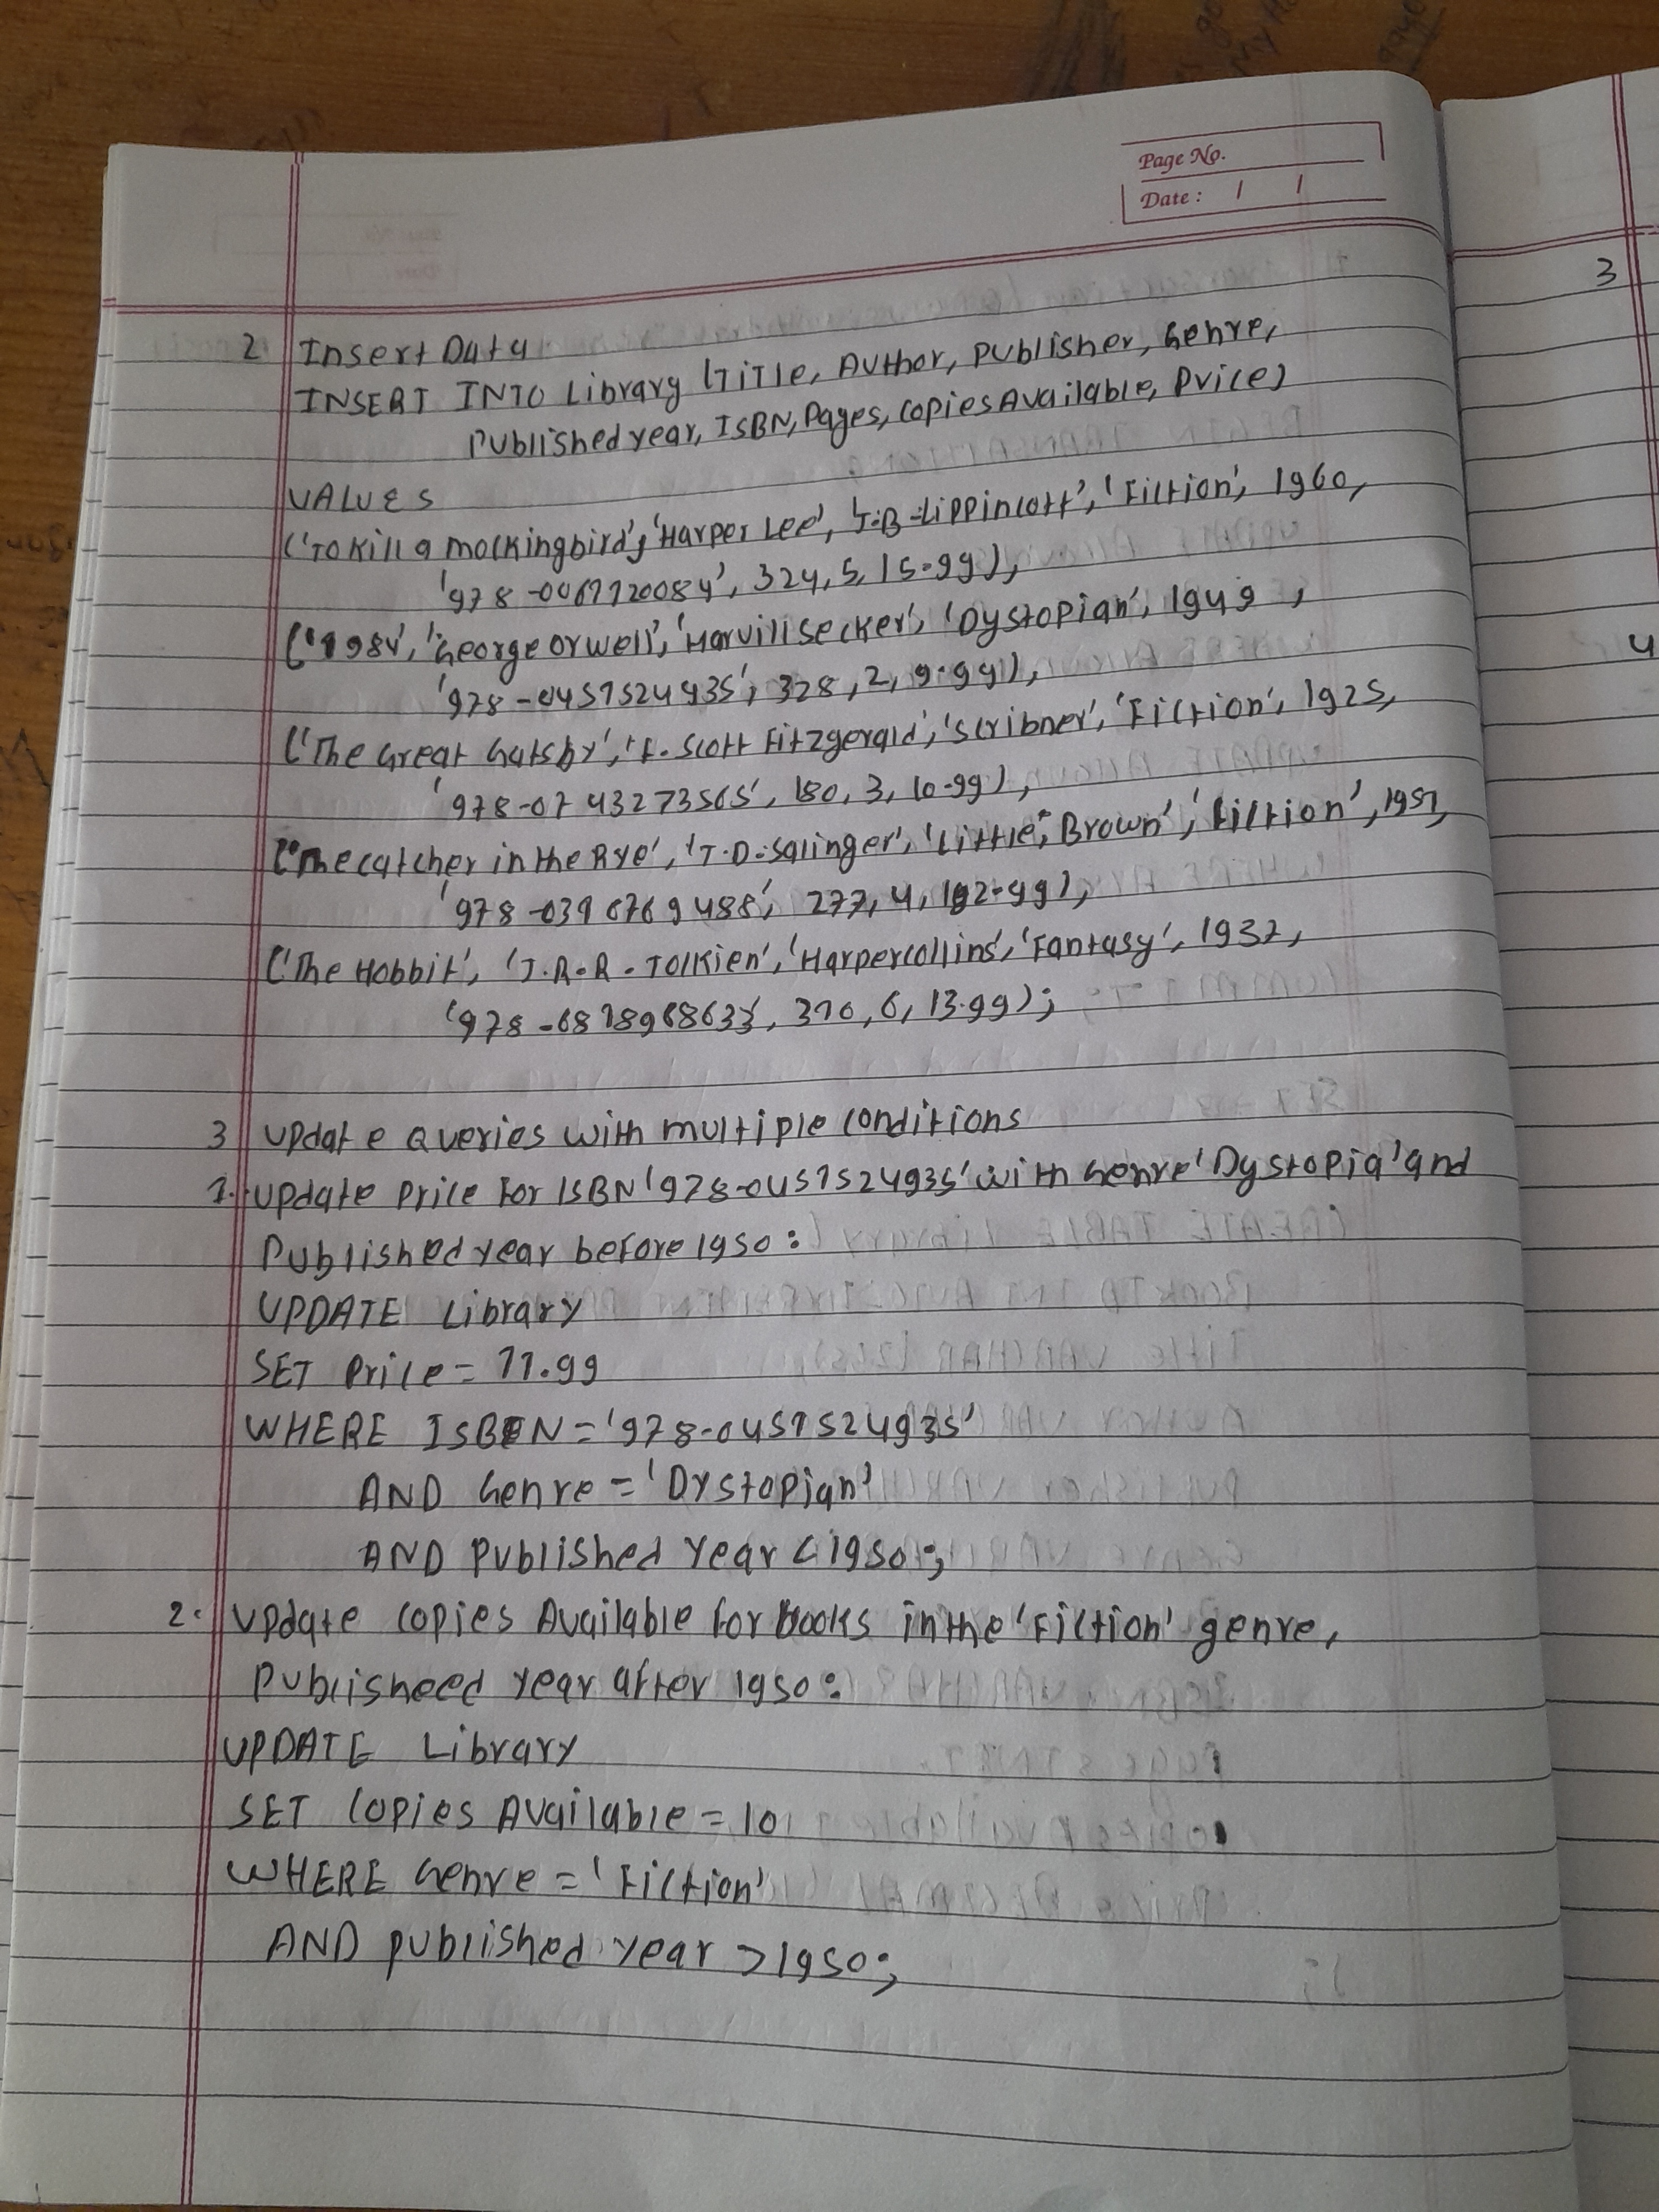 Page No.
Date : / /
3
2 Insert Data
INSERT INTO Library (Title, Author, Publisher, Genre,
Published year, ISBN, Pages, Copies Available, Price)
VALUES
('To Kill a Mockingbird', 'Harper Lee', 'J.B. Lippincott', 'Fiction', 1960,
'978-0061120084', 324, 5, 15.99),
('1984', 'George Orwell', 'Harvill Secker', 'Dystopian', 1949,
'978-0451524935', 328, 2, 9.99),
('The Great Gatsby', 'F. Scott Fitzgerald', 'Scribner', 'Fiction', 1925,
'978-0743273565', 180, 3, 10.99),
('The catcher in the Rye', 'J.D. Salinger', 'Little, Brown', 'Fiction', 1951,
277, 4,
('The Hobbit', 'J.R.R. Tolkien', 'Harpercollins', 'Fantasy', 1937,
310, 6, 13.99);
4
3 Update Queries with multiple conditions
1. Update Price For ISBN '978-0451524935' with Genre 'Dystopia' and
Published year before 1950:
UPDATE Library
SET Price = 11.99
WHERE ISBN = '978-0451524935'
AND Genre = 'Dystopian'
AND Published Year < 1950;
2. Update copies Available for books in the 'Fiction' genre,
Publisheed year after 1950:
UPDATE Library
SET Copies Available = 10
WHERE Genre = 'Fiction'
AND published year > 1950;